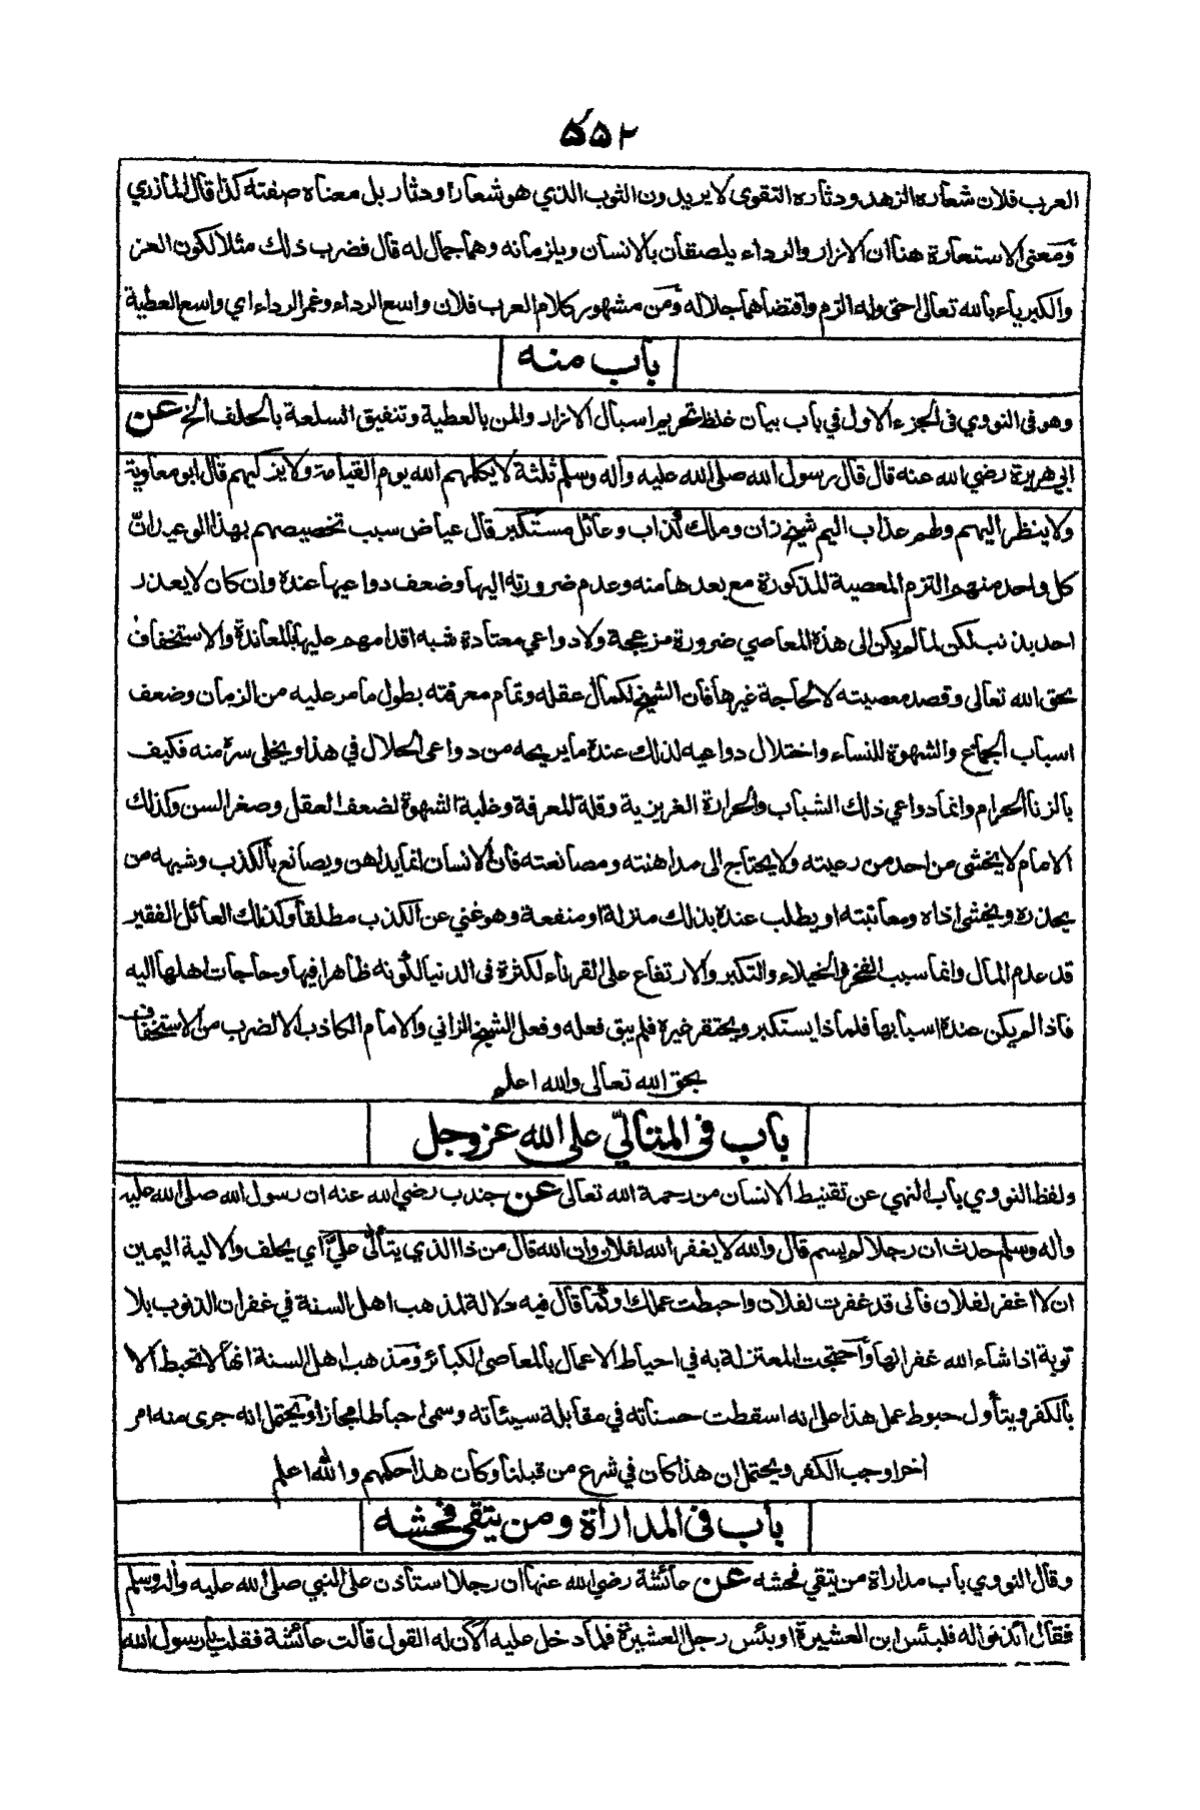 ٥٥٢
العرب فلان شعاره الزهد ودثاره التقوى لا يريدون الثوب الذي هو شعار او دثار بل معناه صفته كذا قال المازري
ومعنى الاستعارة هنا ان الازار والرداء يلصقان بالانسان ويلزمانه وهما جمال له قال فضرب ذلك مثلا لكون العز
والكبرياء بالله تعالى احق وله الزم واقتضاهما جلاله ومن مشهور كلام العرب فلان واسع الرداء وغمر الرداء اي واسع العطية
باب منه
وهو في النووي في الجزء الاول في باب بيان غلظ تحريم اسبال الازار والمن بالعطية وتنفيق السلعة بالحلف الخ عن
ابي هريرة رضي الله عنه قال قال رسول الله صلى الله عليه واله وسلم ثلثة لا يكلمهم الله يوم القيامة ولا يزكيهم قال ابو معاوية
ولا ينظر اليهم ولهم عذاب اليم شيخ زان وملك كذاب وعائل مستكبر قال عياض سبب تخصيصهم بهذا الوعيد ان
كل واحد منهم التزم المعصية المذكورة مع بعدها منه وعدم ضرورته اليها وضعف دواعيها عنده وان كان لا يعذر
احد بذنب لكن لما لم يكن الى هذه المعاصي ضرورة مزعجة ولا دواعي معتادة شبه اقدامهم عليها بالمعاندة والاستخفاف
بحق الله تعالى وقصد معصيته لا لحاجة غيرها فان الشيخ لكمال عقله وتمام معرفته بطول ما مر عليه من الزمان وضعف
اسباب الجماع والشهوة للنساء واختلال دواعيه لذلك عنده ما يريحه من دواعى الحلال في هذا ويخلى سره منه فكيف
بالزنا الحرام وانما دواعي ذلك الشباب والحرارة الغريزية وقلة المعرفة وغلبة الشهوة لضعف العقل وصغر السن وكذلك
الامام لا يخشى من احد من رعيته ولا يحتاج الى مداهنته ومصانعته فان الانسان انما يداهن ويصانع بالكذب وشبهه من
يحذره ويخشى اذاه ومعاتبته او يطلب عنده بذلك منزلة او منفعة وهو غني عن الكذب مطلقا وكذلك العائل الفقير
قد عدم المال وانما سبب الفخر والخيلاء والتكبر والارتفاع على القرناء لكثرة في الدنيا لكونه ظاهرا فيها وحاجات اهلها اليه
فاذا لم يكن عنده اسبابها فلماذا يستكبر ويحتقر غيره فلم يبق فعله وفعل الشيخ الزاني والامام الكاذب الا لضرب من الاستخفاف
بحق الله تعالى والله اعلم
باب في المتألّي على الله عز وجل
ولفظ النووي باب النهي عن تقنيط الانسان من رحمة الله تعالى عن جندب رضي الله عنه ان رسول الله صلى الله عليه
واله وسلم حدث ان رجلا لم يسم قال والله لا يغفر الله لفلان وان الله قال من ذا الذي يتألى عليّ اي يحلف والالية اليمين
ان لا اغفر لفلان فانى قد غفرت لفلان واحبطت عملك او كما قال فيه دلالة لمذهب اهل السنة في غفران الذنوب بلا
توبة اذا شاء الله غفرانها واحتجت المعتزلة به في احباط الاعمال بالمعاصى الكبائر ومذهب اهل السنة انها لا تحبط الا
بالكفر ويتأول حبوط عمل هذا على انه اسقطت حسناته في مقابلة سيئاته وسمى احباطا مجازا ويحتمل انه جرى منه امر
اخر اوجب الكفر ويحتمل ان هذا كان في شرع من قبلنا وكان هذا حكمهم والله اعلم
باب في المداراة ومن يتقى فحشه
وقال النووي باب مداراة من يتقي فحشه عن عائشة رضي الله عنها ان رجلا استأذن على النبي صلى الله عليه واله وسلم
فقال ائذنوا له فلبئس ابن العشيرة او بئس رجل العشيرة فلما دخل عليه الان له القول قالت عائشة فقلت يا رسول الله